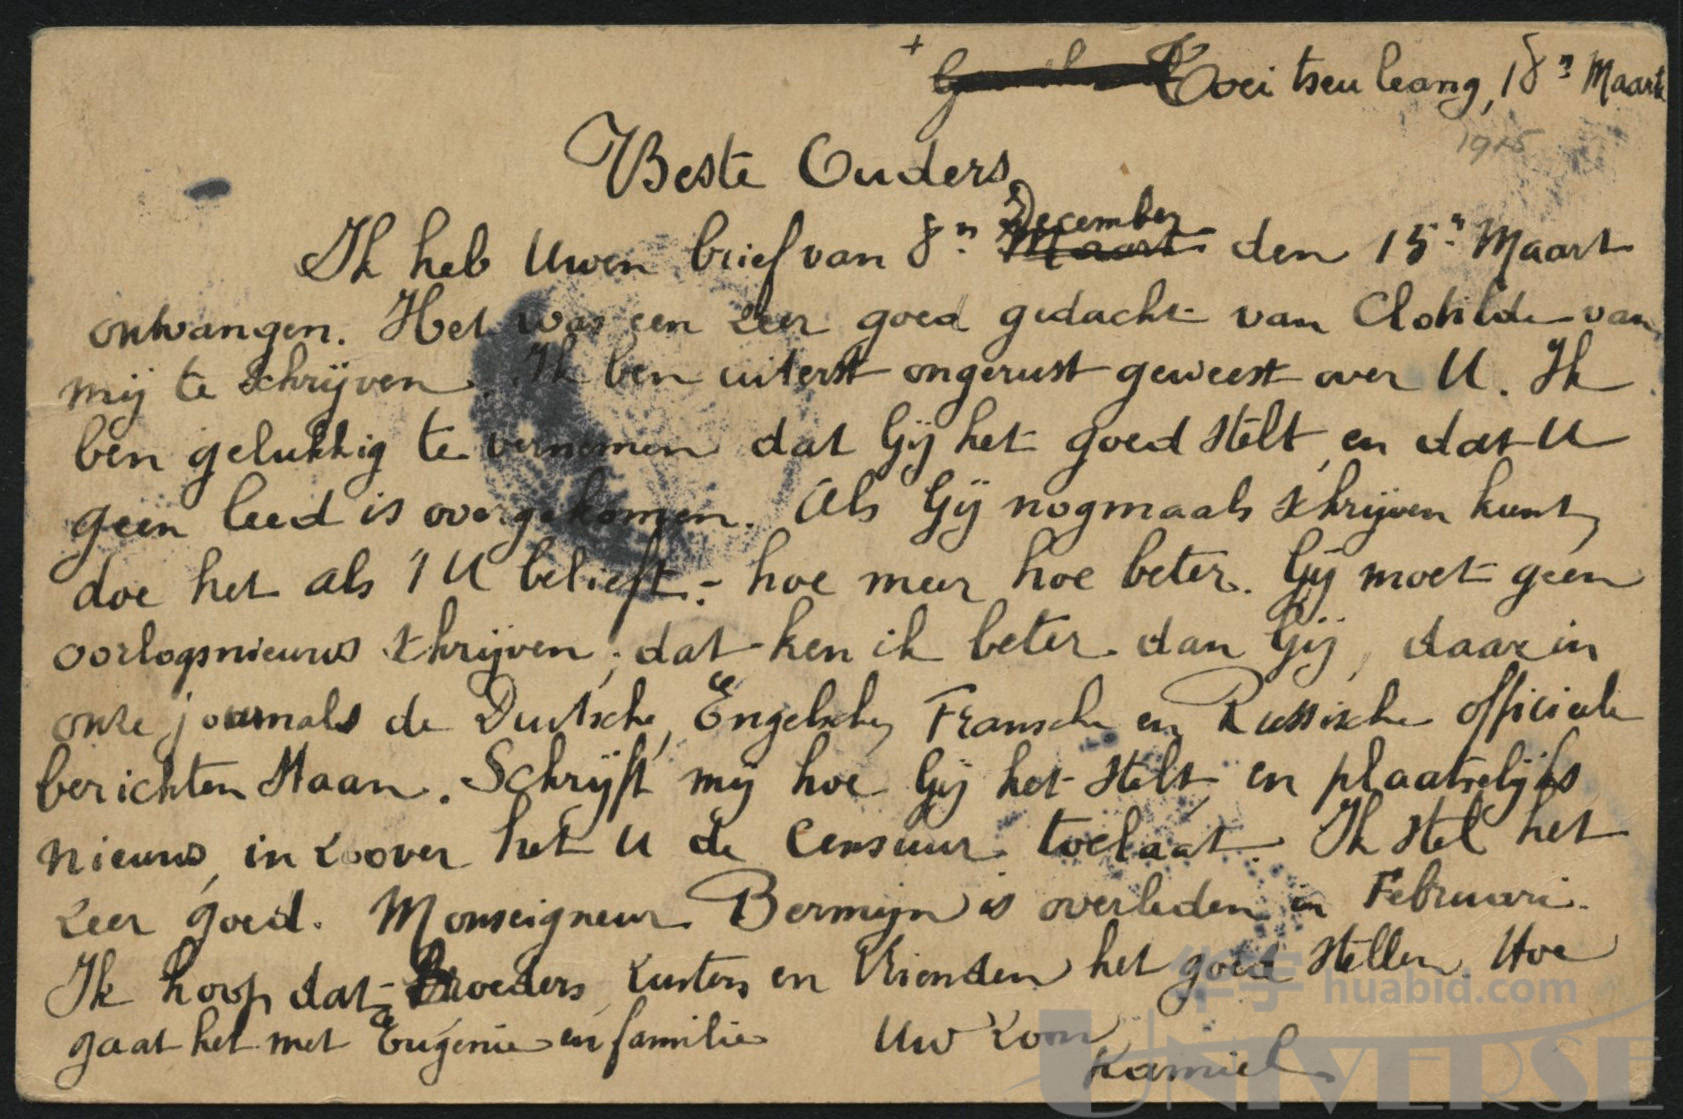 + Koei tseu leang, 18n Maart
1915
Beste Ouders
December
Ik heb Uwen brief van 8n Maart den 15n Maart
ontvangen. Het was een zeer goed gedacht van Clotilde van
mij te schrijven. Ik ben uiterst ongerust geweest over U. Ik
ben gelukkig te vernemen dat Gij het goed stelt, en dat U
geen leed is overgekomen. Als Gij nogmaals schrijven kunt,
doe het als 't U belieft. - hoe meer hoe beter. Gij moet geen
oorlogsnieuws schrijven; dat ken ik beter dan Gij, daar in
onze journals de Duitsche, Engelsche, Fransche en Russische officiele
berichten staan. Schrijft mij hoe Gij het stelt en plaatselijks
nieuws, in zoover het U de censuur toelaat. Ik stel het
zeer goed. Monseigneur Bermijn is overleden in Februari.
Ik hoop dat Broeders, zusters en Vrienden het goed stellen. Hoe
gaat het met Eugenie en familie Uw zoon
Kamiel
华宇 huabid.com
UNIVERSE